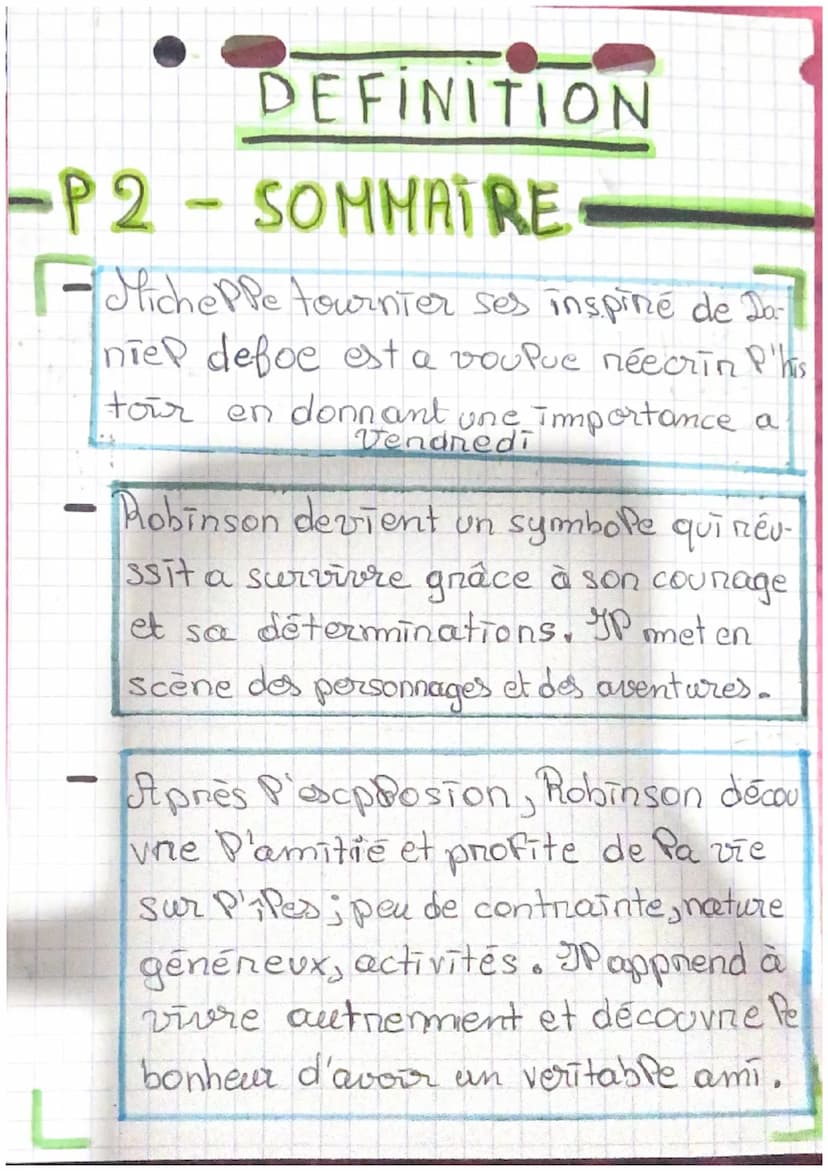 DEFINITION
P2 - SOMMAIRE
- Michelle tournier ses inspiré de Da-
niel defoe est a voulue réecrir l'his
toir en donnant une importance a
Vendredi
- Robinson devient un symbole qui réu-
ssit a survivre grâce à son courage
et sa déterminations. Il met en
scène des personnages et des aventures.
- Après l'escplosion, Robinson décou
vre l'amitié et profite de la vie
sur l'îles ; peu de contrainte, nature
généreux, activités. Il apprend à
vivre autrement et découvre le
bonheur d'avoir un veritable ami.